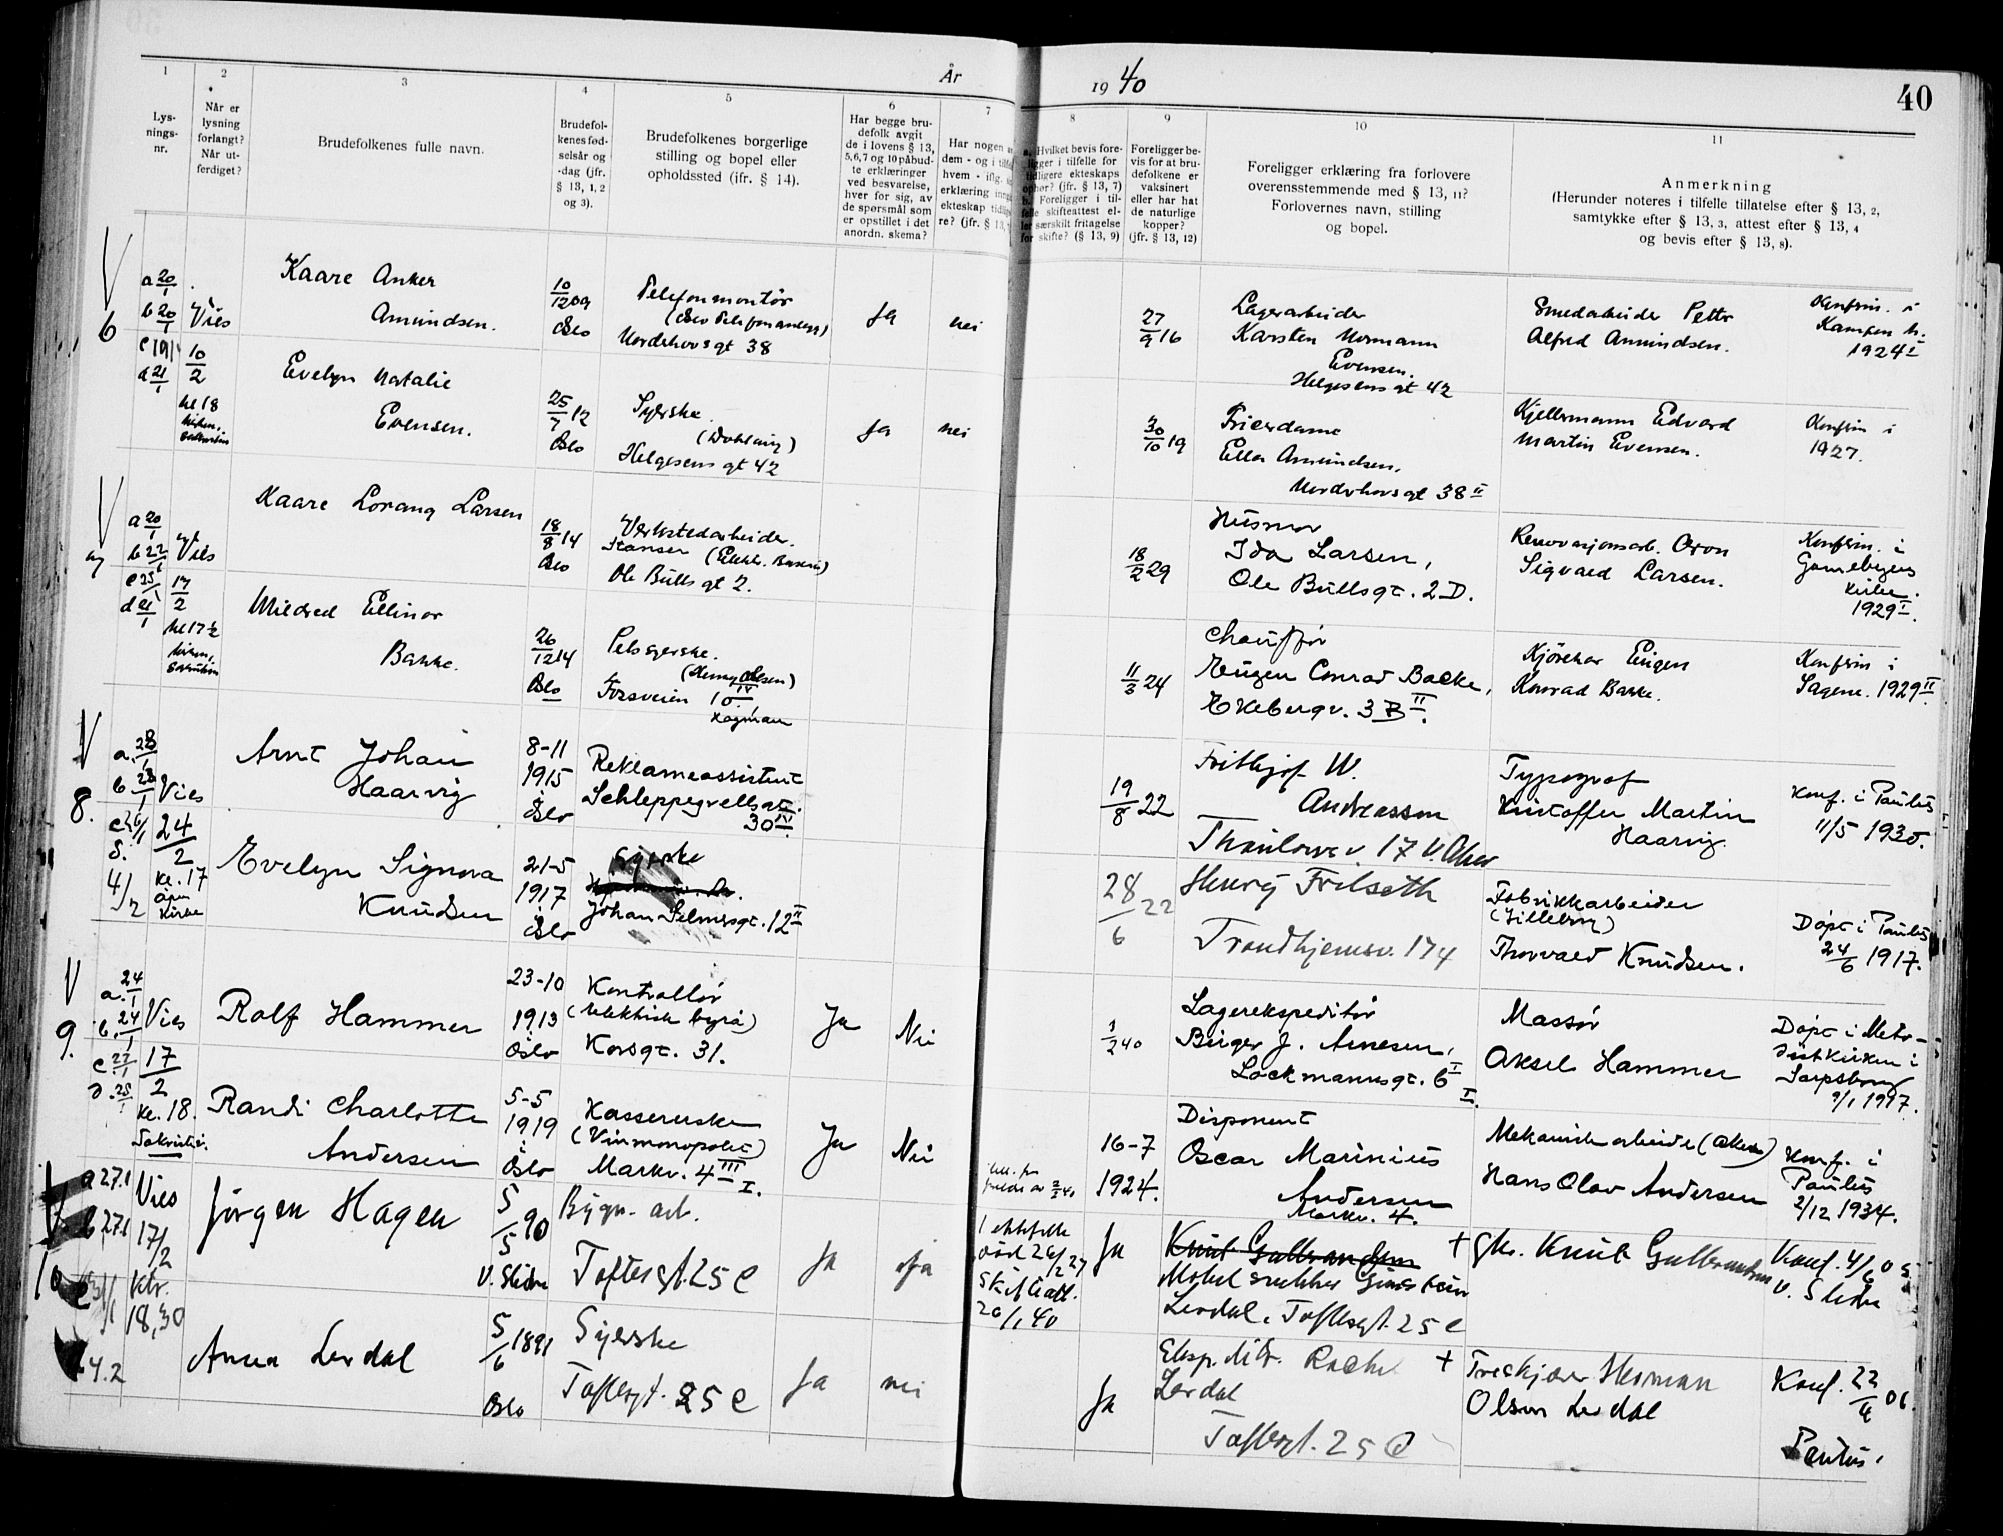 År 1940
40
1
2
3
4
5
6
7
8
9
10
11
Lys-
nings-
nr.
Når er
lysning
forlangt?
Når ut-
ferdiget?
Brudefolkenes fulle navn.
Brudefol-
kenes fød-
selsår og
-dag (jfr.
§ 13, 1, 2
og 3).
Brudefolkenes borgerlige
stilling og bopel eller
opholdssted (ifr. § 14).
Har begge bru-
defolk avgit
de i lovens § 13,
5,6,7 og 10 påbud-
te erklæringer
ved besvarelse,
hver for sig, av
de spørsmål som
er opstillet i det
anordn. skema?
Har nogen
dem - og i
hvem - iflg.
erklæring
ekteskap
re? (jfr. § 13,
Hvilket bevis fore-
ligger i tilfelle for
tidligere ekteskaps
ophør? (jfr. § 13, 7)
b. Foreligger i til-
felle skifteattest el-
ler særskilt fritagelse
for skifte? (§ 13, 9)
Foreligger be-
vis for at bru-
defolkene er
vaksinert
eller har hat
de naturlige
kopper?
(jfr. § 13, 12)
Foreligger erklæring fra forlovere
overensstemmende med § 13, 11?
Forlovernes navn, stilling
og bopel.
Anmerkning
(Herunder noteres i tilfelle tillatelse efter § 13, 2,
samtykke efter § 13, 3, attest efter § 13, 4
og bevis efter § 13, 8).
6
a 20/1
b 20/1
d 21/1
Vies
10/2
kl 18
Kaare Anker
Amundsen.
10/12 09
Oslo
Telefonmontør
(Oslo Telefonanlegg)
Nordahls gt 38
Ja
nei
27/9 16
Lagerarbeider
Karsten Normann
Evensen.
Helgesens gt 42
Smedarbeider Petter
Alfred Amundsen.
Konfirm. i
Kampen k.
1924 I
Evelyn Natalie
Evensen.
25/7 12
Oslo
Syerske
Helgesens gt 42
Ja
nei
30/10 19
Frierdame
Ella Amundsen,
38 II
Kjellermann Edvard
Martin Evensen.
Konfirm i
1927.
7
a 20/1
b 22/1
c 25/1
d 21/1
Vies
17/2
kl 17½
Kaare Lorang Larsen
18/8 14
Oslo
Verkstedarbeider.
Stanser
Ole Bulls gt 2.
18/2 29
Husmor
Ida Larsen,
Ole Bullsgt. 2 D.
Renovasjonsarb. Oron
Sigvald Larsen.
Konfirm. i
Gamlebyens
kirke.
1929 I.
Mildred Ellinor
Bakke.
26/12 14
Oslo
Pelssyerske.
(Henry Olsen)
Forsveien 10 IV
Hagman
11/3 24
Chauffør
Eugen Conrad Bakke,
Ekebergv. 3 B II.
Kjørekar Eugen
Konrad Bakke.
Konfirm i
Sagene. 1929 II
8.
a. 23/1
b 23/1
c 26/1
d.
4/2
Vies
24/2
kl. 17
åpen
kirke
Arnt Johan
Haarvig
8-11
1915
Oslo
Reklameassistent
Schleppegrellsgt.
30 IV.
19/8 22
Frithjof W.
Andreassen
Thaulowv. 17 V. Aker
Typograf
Kristoffer Martin
Haarvig.
Konf. i Paulus
11/5 1930.
Evelyn Signora
Knudsen
21-5
1917
Oslo
Syerske
Johan Selmersgt. 12 II
28/6 22
Henry Frilseth
Trondhjemsv. 174
Fabrikkarbeider
(Lilleborg)
Thorvald Knudsen.
Døpt i Paulus
24/6 1917.
9.
a. 24/1
b. 24/1
c. 22/1
d. 25/1
Vies
17/2
kl. 18.
Sakristiet.
Rolf Hammer
23-10
1913
Oslo
Kontrollør
(elektrisk byrå)
Korsgt. 31.
Ja
Nei
1/2 40
Lagerekspeditør
Birger J. Arnesen,
Lockmannsgt. 6 I
I.
Massør
Aksel Hammer
Døpt i Meto-
distkirken i
Sarpsborg
9/1 1917.
Randi Charlotte
Andersen
5-5
1919
Oslo
Kassererske
(Vinmonopolet)
Markv. 4 III I.
Ja
Nei
16-7
1924.
Disponent
Oscar Marinius
Andersen
Markv. 4.
Mekanisk arbeider (Akers)
Hans Olav Andersen
Konf. i
Paulus
2/12 1934.
10
a 27.1
b 27.1
c 31/1
d 4.2
Vies
17/2
klr.
18,30
Jørgen Hagen
5/5 90
V. Slidre
Bygn. arb.
Toftesgt. 25 C
Ja
Ja
1 ektefelle
død 26/2 27
Skifteatt.
26/1 40
Ja
Knut Gulbrandsen
Møbelsnekker
Lerdal, Toftesgt. 25 C
+ Gbr. Knut Gulbrandsen
Konf. 4/6 05
V. Slidre
Anna Lerdal
5/6 1891
Oslo
Syerske
Toftesgt. 25 C
Ja
nei
Ja
Eksp. ditr. Rachel
Lerdal
Toftesgt. 25 C
+ Treskjærer Herman
Olsen Lerdal
Konf. 22/4 06.
Paulus.